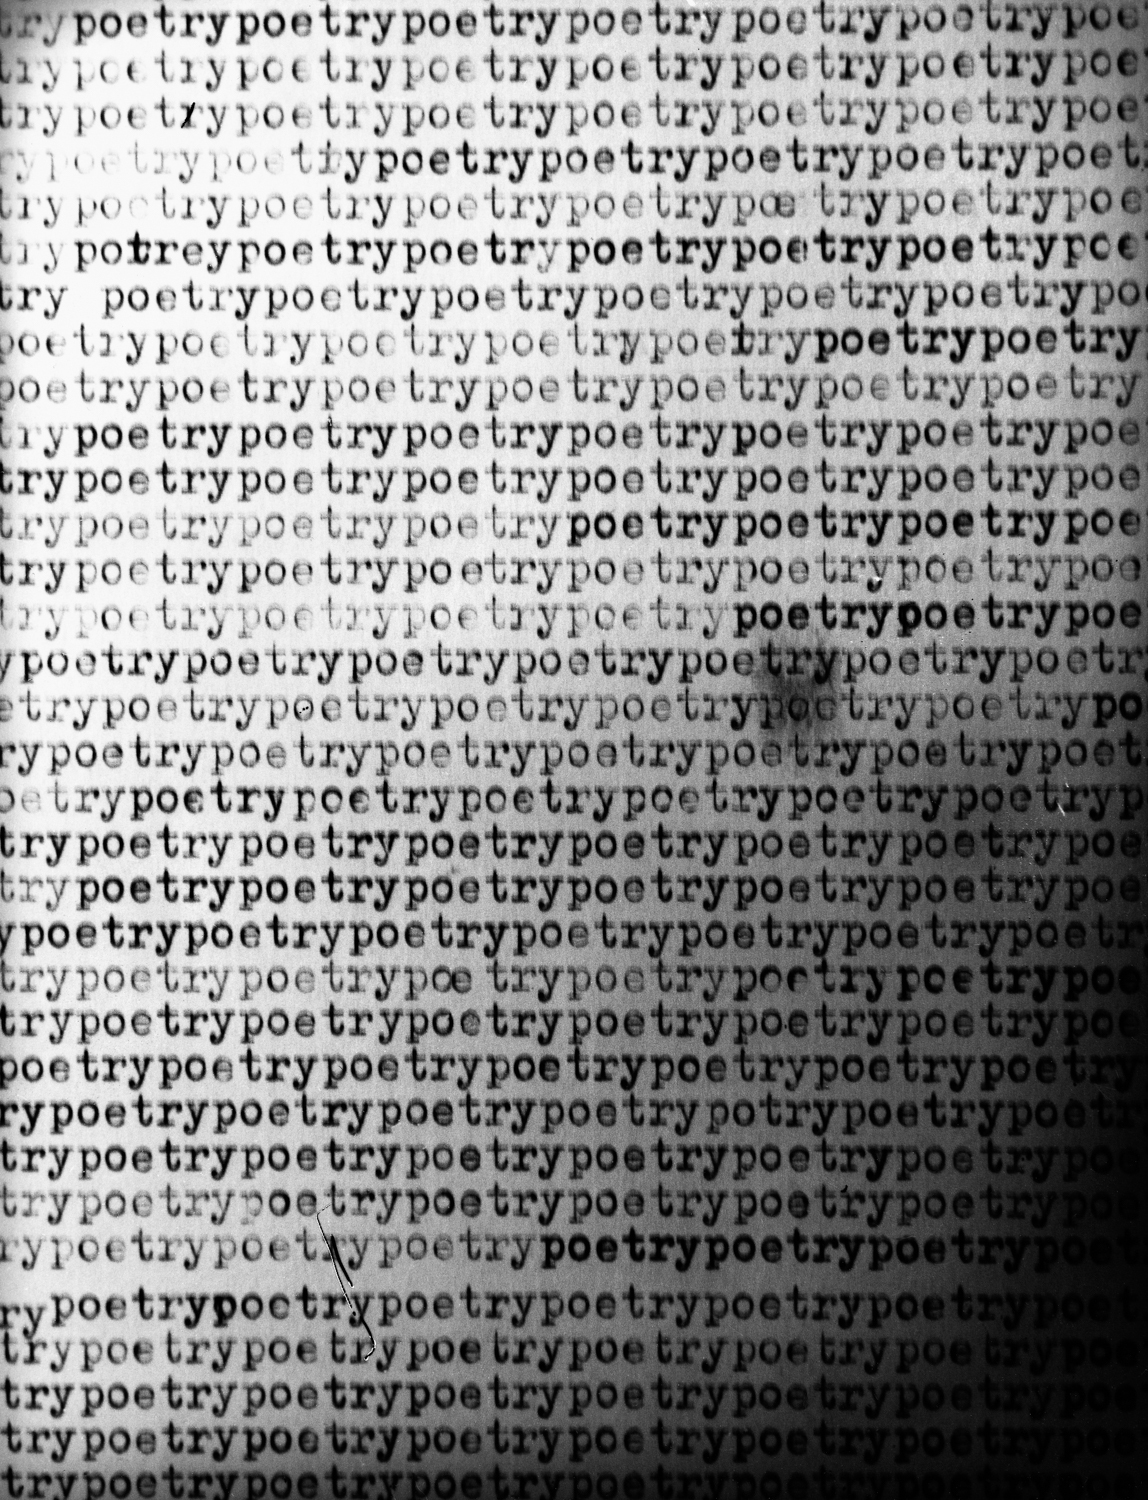 trypoetrypoetrypoetrypoetrypoetrypoetrypoe
trypoetrypoetrypoetrypoetrypoetrypoetrypoe
trypoetrypoetrypoetrypoetrypoetrypoetrypoe
rypoetrypoetrypoetrypoetrypoetrypoetrypoet
trypoetrypoetrypoetrypoetrypoe trypoetrypoe
trypotreypoetrypoetrypoetrypoetrypoetrypoe
try poetrypoetrypoetrypoetrypoetrypoetrypo
poetrypoetrypoetrypoetrypoetrypoetrypoetry
poetrypoetrypoetrypoetrypoetrypoetrypoetry
trypoetrypoetrypoetrypoetrypoetrypoetrypoe
trypoetrypoetrypoetrypoetrypoetrypoetrypoe
trypoetrypoetrypoetrypoetrypoetrypoetrypoe
trypoetrypoetrypoetrypoetrypoetrypoetrypoe
trypoetrypoetrypoetrypoetrypoetrypoetrypoe
ypoetrypoetrypoetrypoetrypoetrypoetrypoetr
etrypoetrypoetrypoetrypoetrypoetrypoetrypo
rypoetrypoetrypoetrypoetrypoetrypoetrypoet
oetrypoetrypoetrypoetrypoetrypoetrypoetryp
trypoetrypoetrypoetrypoetrypoetrypoetrypoe
trypoetrypoetrypoetrypoetrypoetrypoetrypoe
ypoetrypoetrypoetrypoetrypoetrypoetrypoetr
trypoetrypoetrypoe trypoetrypoetrypoetrypoe
trypoetrypoetrypoetrypoetrypoetrypoetrypoe
poetrypoetrypoetrypoetrypoetrypoetrypoetry
rypoetrypoetrypoetrypoetrypotrypoetrypoetr
trypoetrypoetrypoetrypoetrypoetrypoetrypoe
trypoetrypoetrypoetrypoetrypoetrypoetrypoe
rypoetrypoetrypoetrypoetrypoetrypoetrypoet
rypoetrypoetrypoetrypoetrypoetrypoetrypoet
trypoetrypoetrypoetrypoetrypoetrypoetrypoe
trypoetrypoetrypoetrypoetrypoetrypoetrypoe
trypoetrypoetrypoetrypoetrypoetrypoetrypoe
trypoetrypoetrypoetrypoetrypoetrypoetrypoe